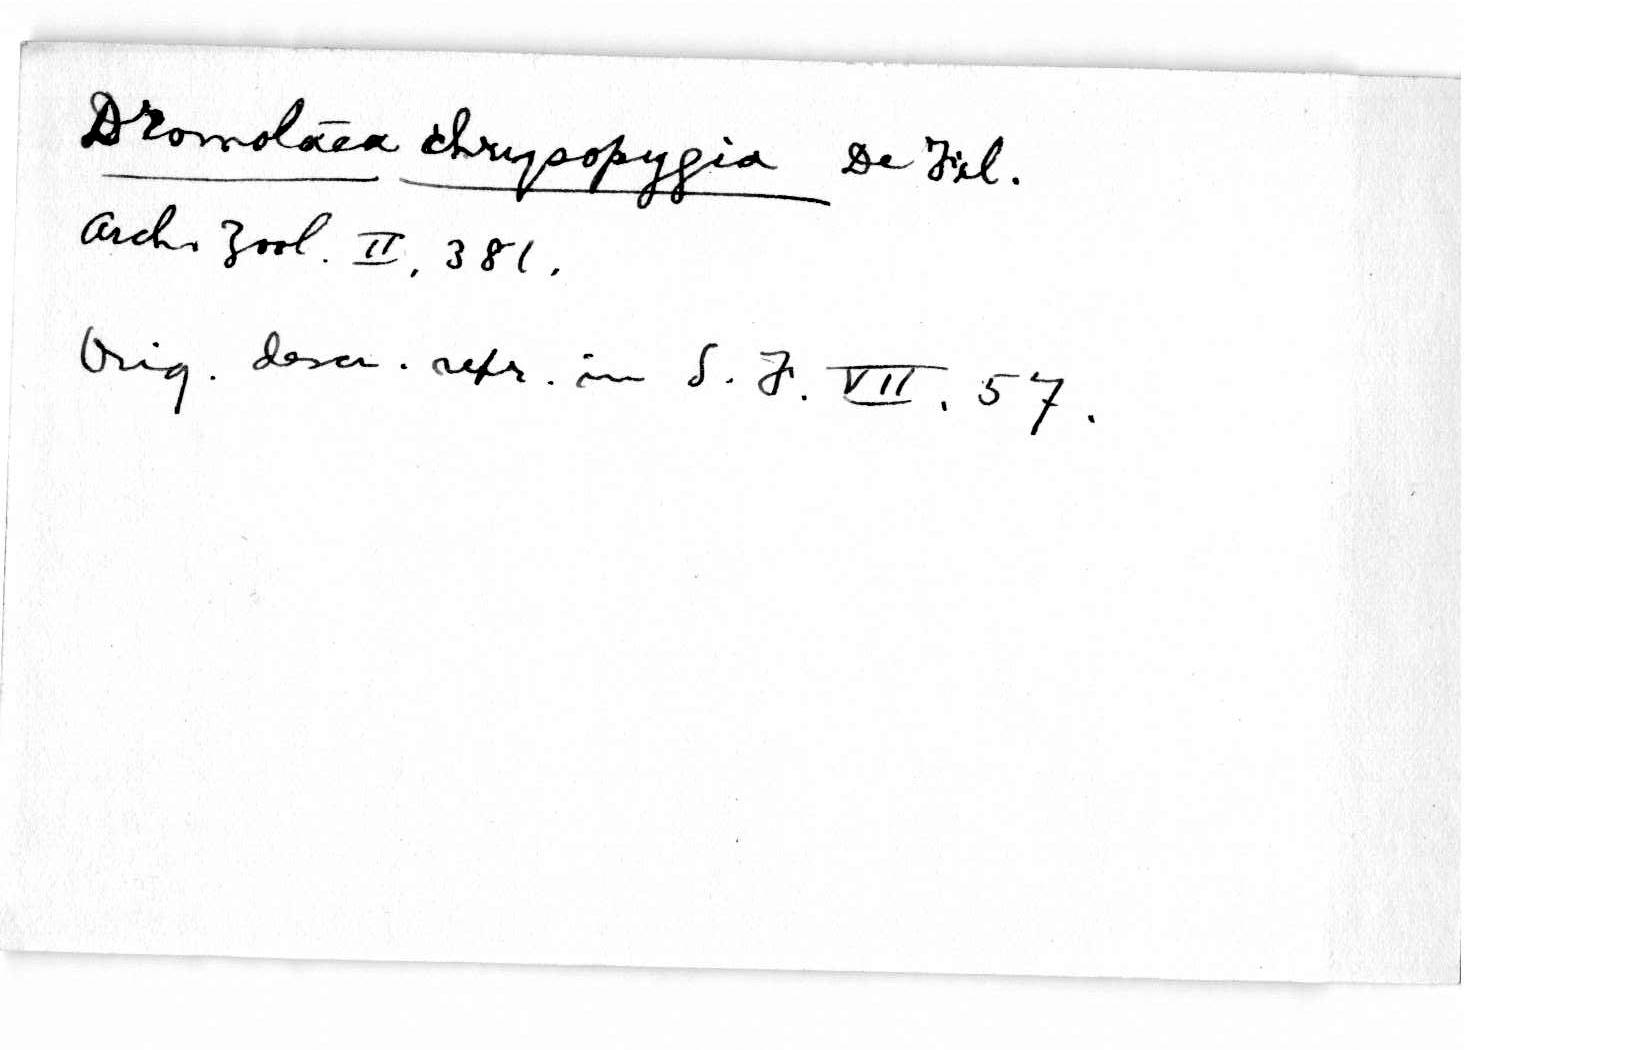 Dromolaea chrysopygia De Fil.
Arch. Zool. II, 381.
Orig. descr. repr. in S. F. VII. 57.